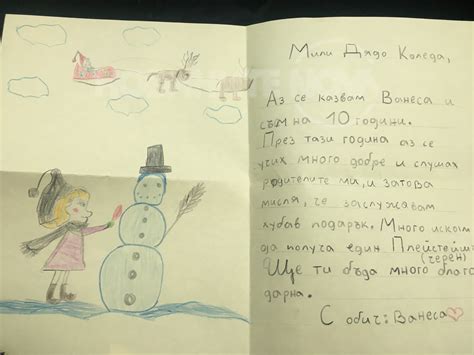 Мили Дядо Коледа,
Аз се казвам Ванеса и
съм на 10 години.
През тази година аз се
учих много добре и слушах
родителите ми, и затова
мисля, че заслужавам
хубав подарък. Много искам
да получа един Плейстейшън
(черен)
Ще ти бъда много благо
дарна.
С обич: Ванеса